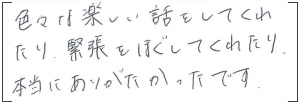 色々な楽しい話をしてくれ
たり、緊張をほぐしてくれたり、
本当にありがたかったです。